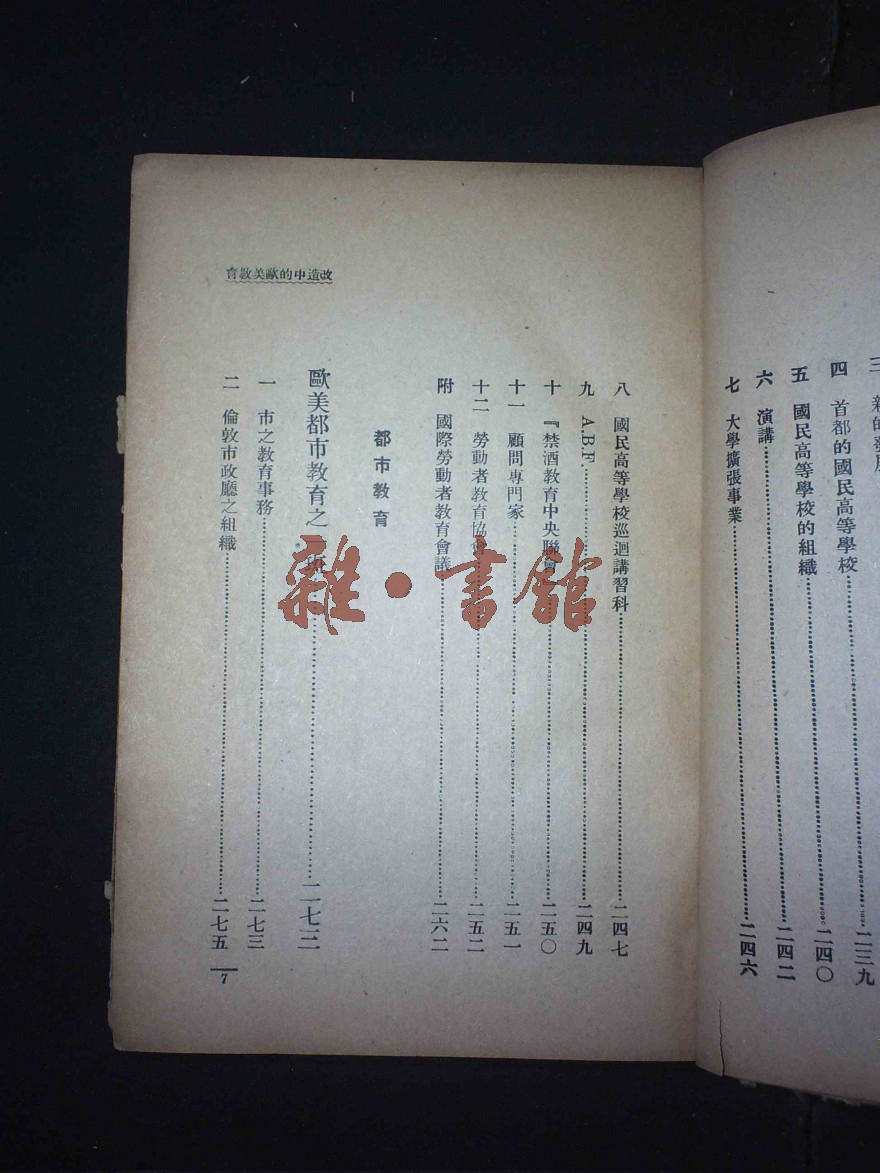 四 首都的國民高等學校……二三九
五 國民高等學校的組織……二四〇
六 演講……二四二
七 大學擴張事業……二四六
改造中的歐美教育
八 國民高等學校巡迴講習科……二四七
九 A.B.F.……二四九
十 『禁酒教育中央聯會……二五〇
十一 顧問專門家……二五一
十二 勞動者教育協會……二五二
附 國際勞動者教育會議……二六二
都市教育
歐美都市教育之一斑……二七三
一 市之教育事務……二七三
二 倫敦市政廳之組織……二七五
7
雜·書館